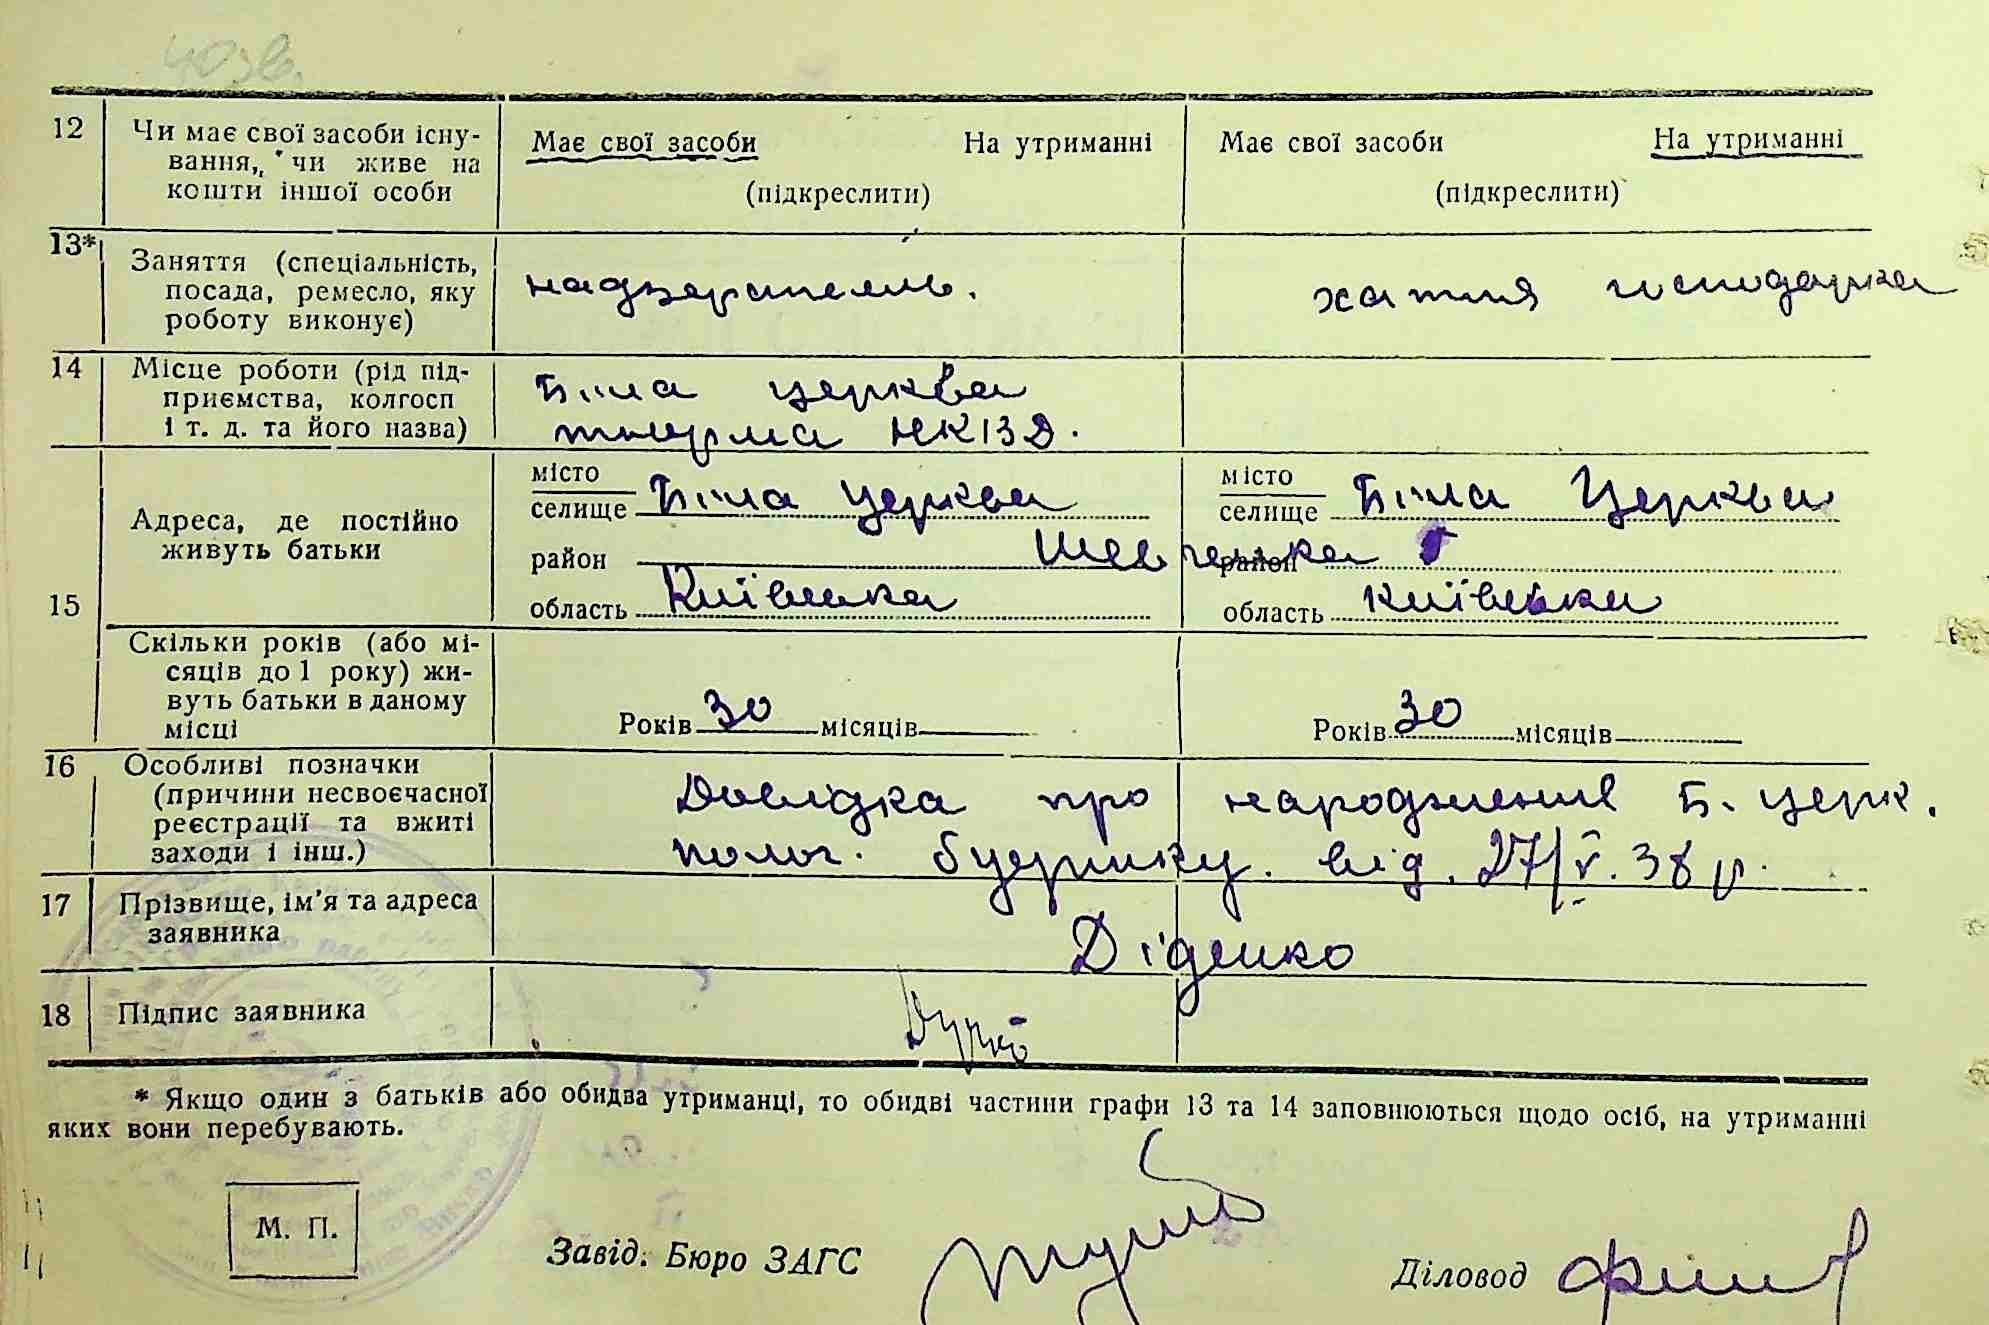 40зв.
12 Чи має свої засоби існу- Має свої засоби На утриманні Має свої засоби На утриманні
вання, чи живе на
кошти іншої особи (підкреслити) (підкреслити)
13* Заняття (спеціальність, надзиратель. хатня господарка
посада, ремесло, яку
роботу виконує)
14 Місце роботи (рід під- Біла церква
приємства, колгосп
і т. д. та його назва) тюрма НКВД.
15 Адреса, де постійно
живуть батьки
місто
селище Біла церква
район Шевченка
область Київська
місто
селище Біла Церква
район
область Київська
Скільки років (або мі-
сяців до 1 року) жи-
вуть батьки в даному
місці
Років 30 місяців
Років 30 місяців
16 Особливі позначки
(причини несвоєчасної
реєстрації та вжиті
заходи і інш.)
Довідка про народження Б. церк.
полог. будинку. від. 27/V. 38 р.
17 Прізвище, ім'я та адреса
заявника
Діденко
18 Підпис заявника
* Якщо один з батьків або обидва утриманці, то обидві частини графи 13 та 14 заповнюються щодо осіб, на утриманні
яких вони перебувають.
М. П.
Завід. Бюро ЗАГС
Діловод